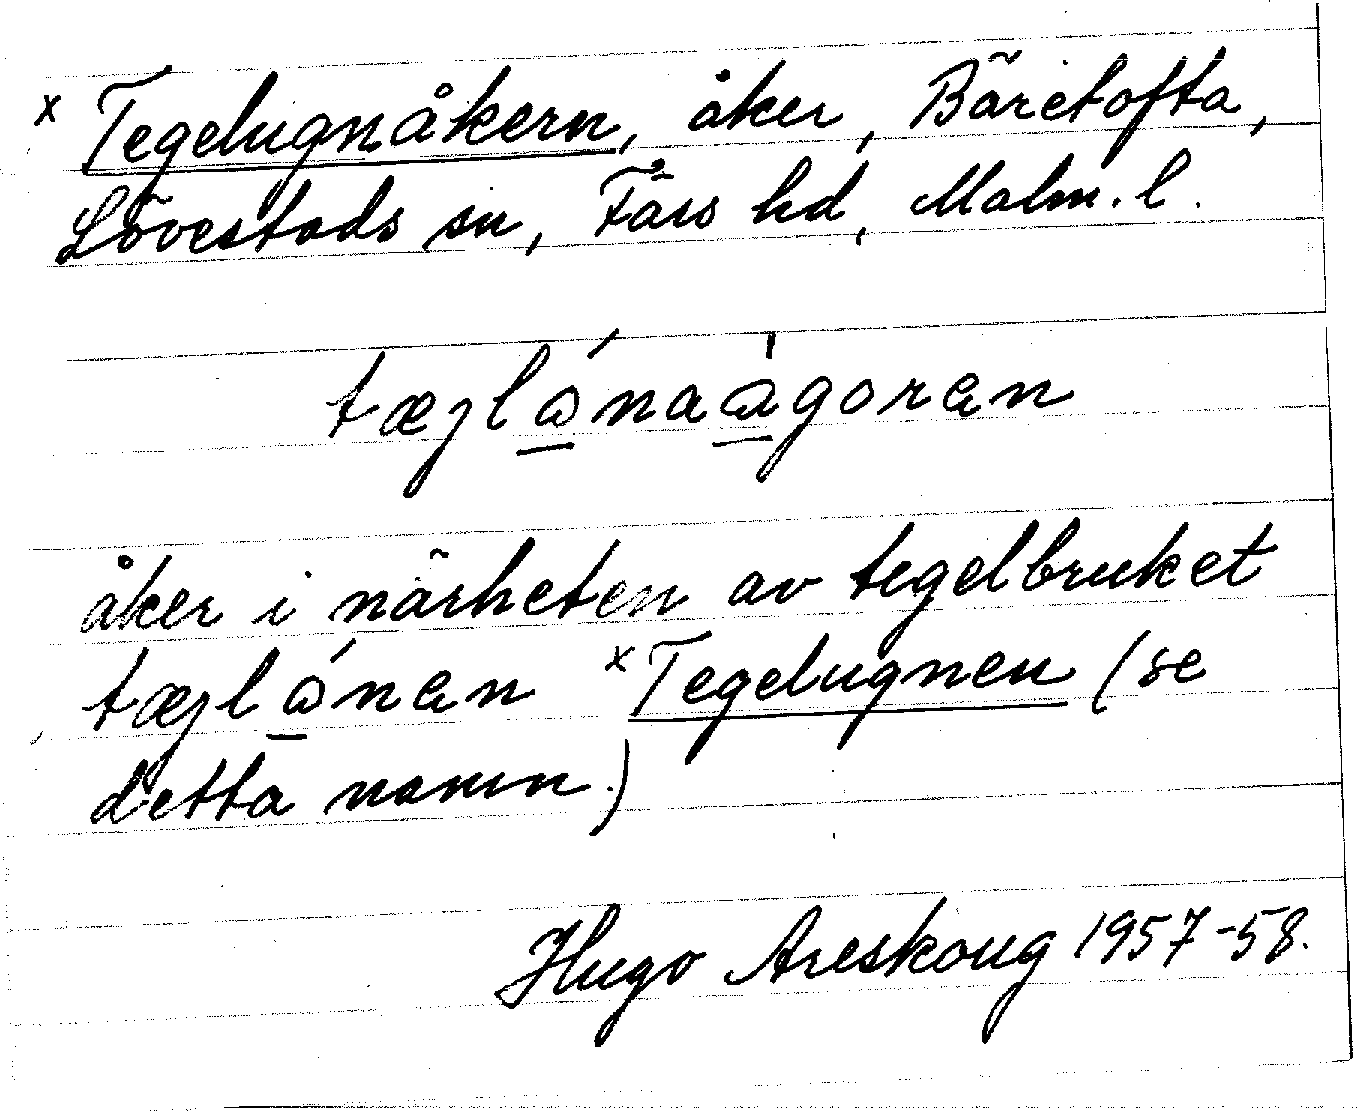 x Tegelugnåkern, åker, Bäretofta,
Lövestads sn, Färs hd, Malm. l.
tæȷlǻnaågoran
åker i närheten av tegelbruket
tæȷlǻnan x Tegelugnen (se
detta namn.)
Hugo Areskoug 1957-58.